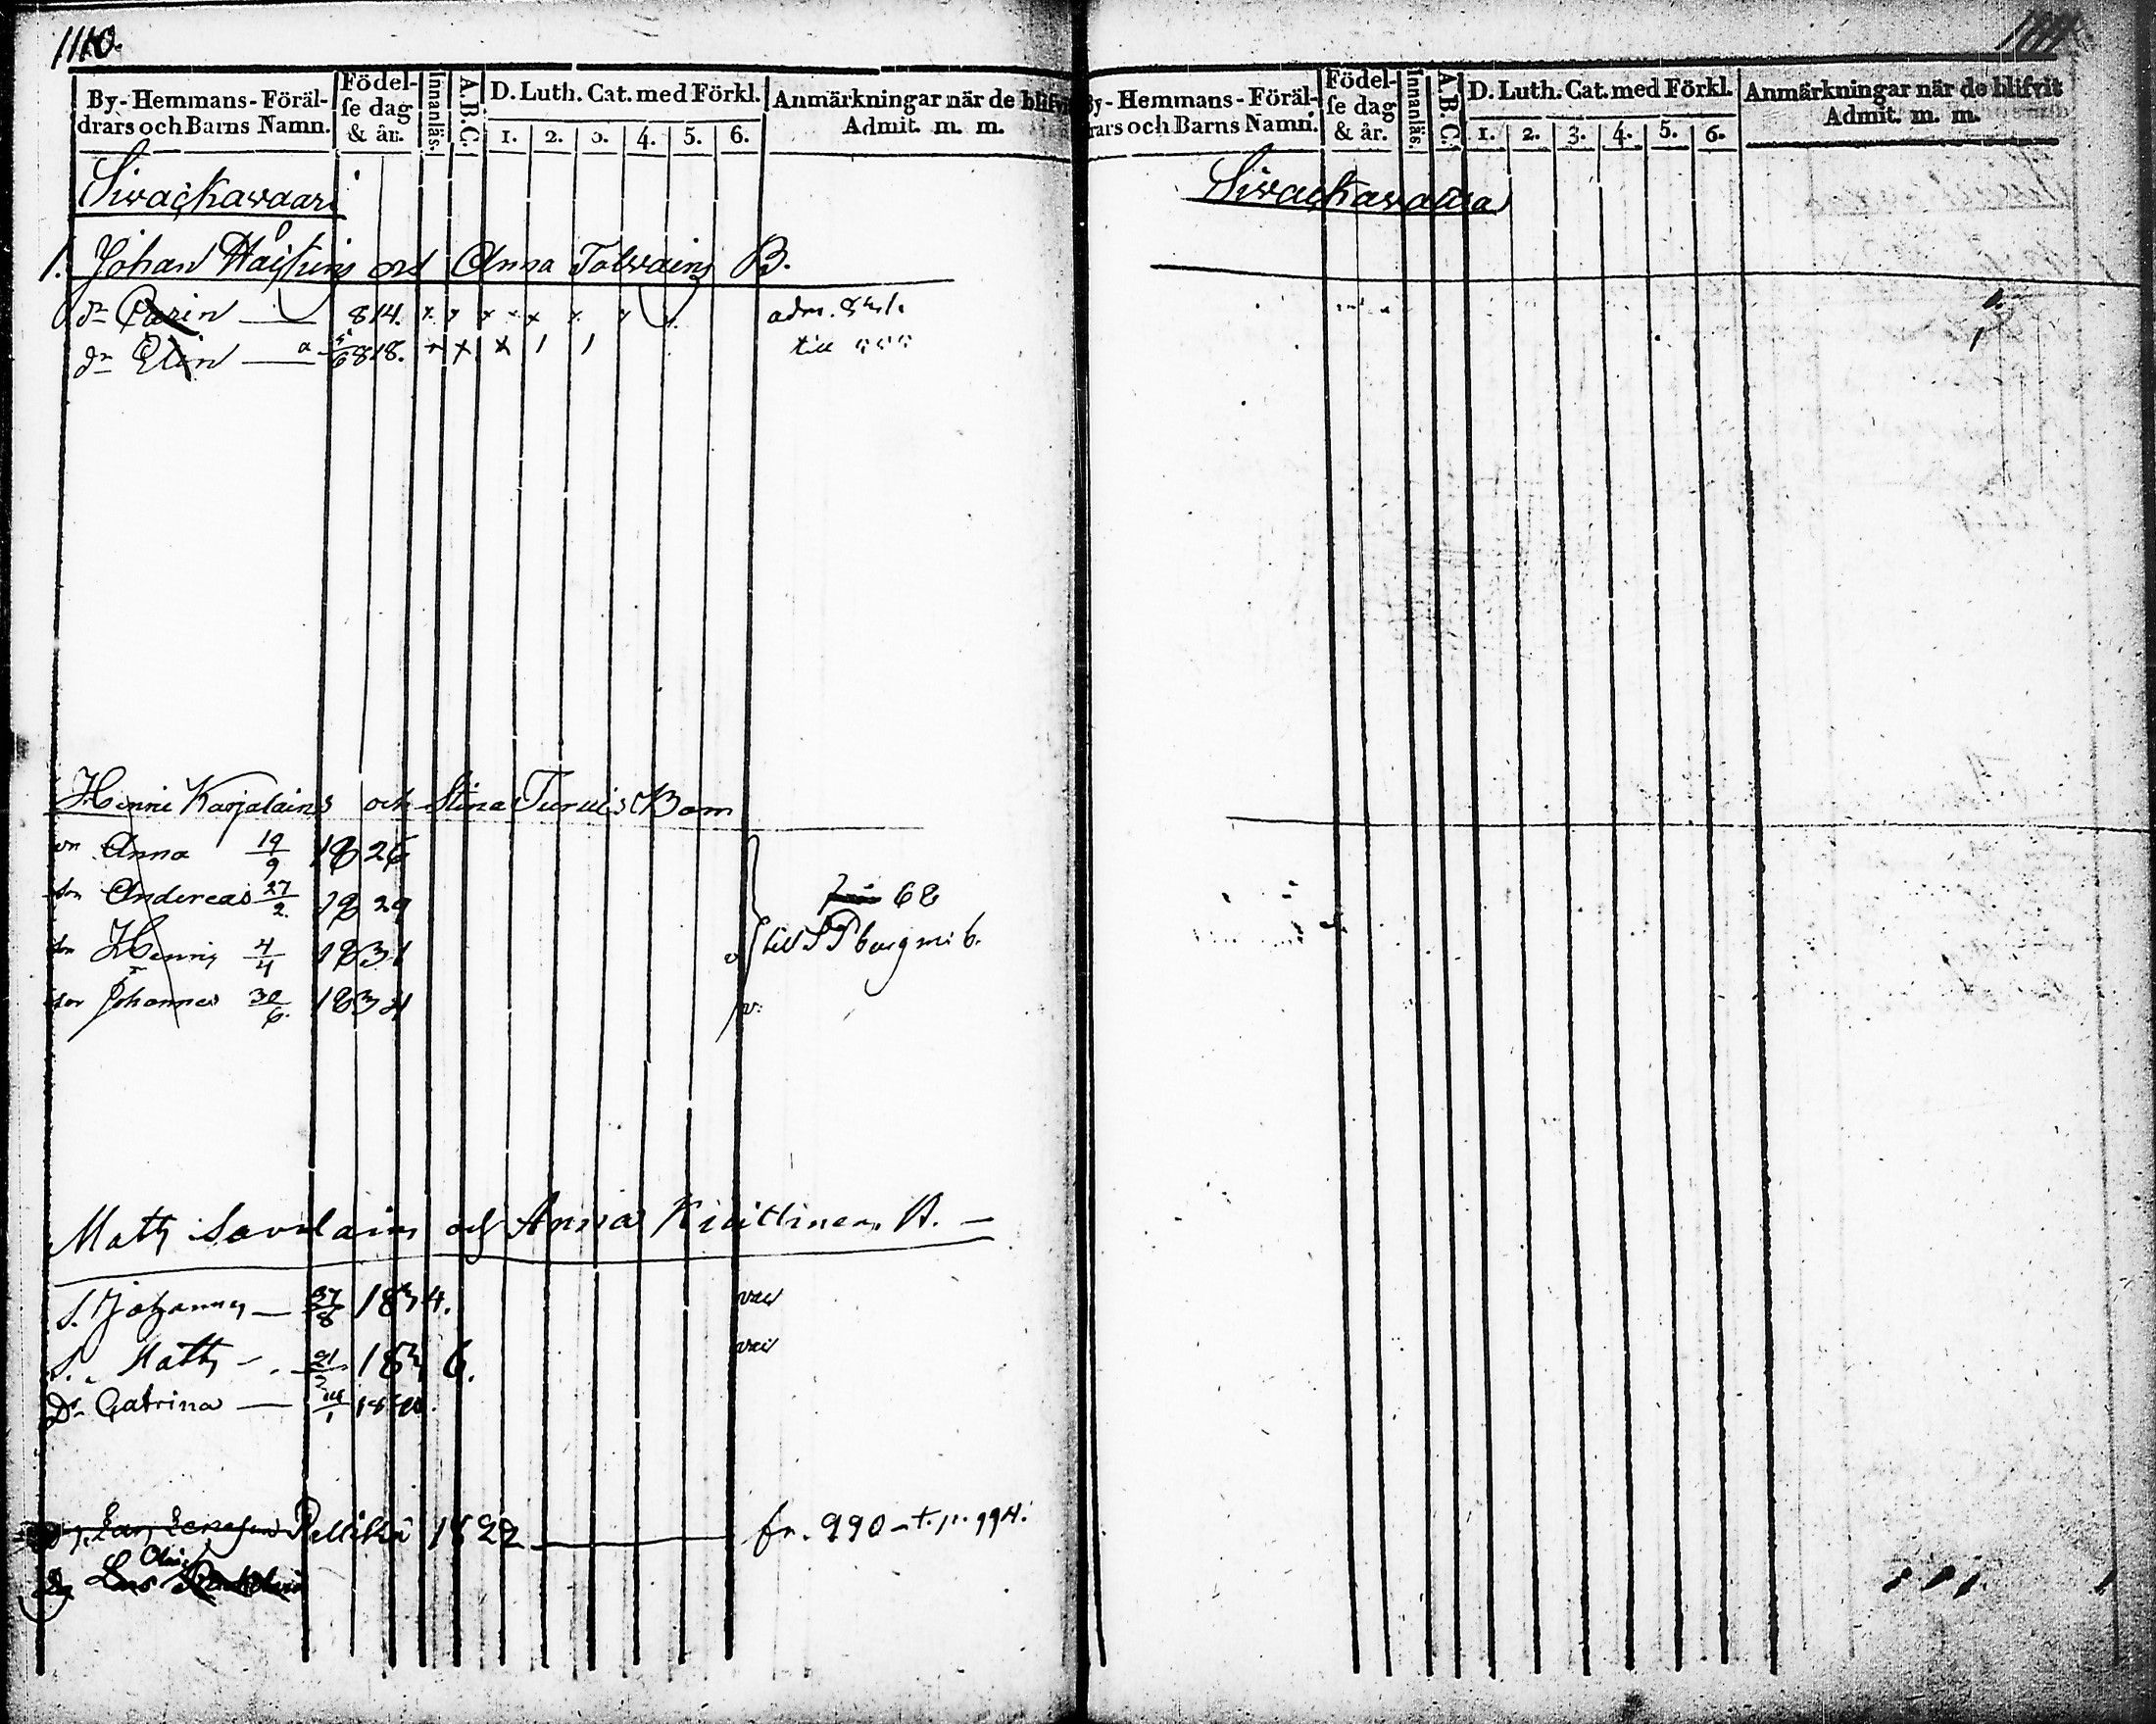 1110.
By-Hemmans-Föräl-
drars och Barns Namn.
Födel-
se dag
& år.
Innanläs.
A.B.C.
D. Luth. Cat. med Förkl.
1. 2. 3. 4. 5. 6.
Anmärkningar när de blifvit
Admit. m. m.
Sivackavaara
1. Johan och Anna Tolvains B.
dr Carin — 814. x x x x x x x x adm.
dr Elin — 818. x x x 1 1 till
Henric Karjalains och Stina Turuis Barn
Anna 19/9 1826
son Andereas 27/2. 1829 68
son Henric 4/4 1831 till
son Johannes 30/6. 1834
Matts Savolain och Anna B. —
S. Johannes — 27/8 1834.
S. Matts — 21 1836.
Dr Catrina — 1840.
Pellikä 1822 — fr. 990 – t. p. 994.
By-Hemmans-Föräl-
drars och Barns Namn.
Födel-
se dag
& år.
Innanläs.
A.B.C.
D. Luth. Cat. med Förkl.
1. 2. 3. 4. 5. 6.
Anmärkningar när de blifvit
Admit. m. m.
Sivackavaara